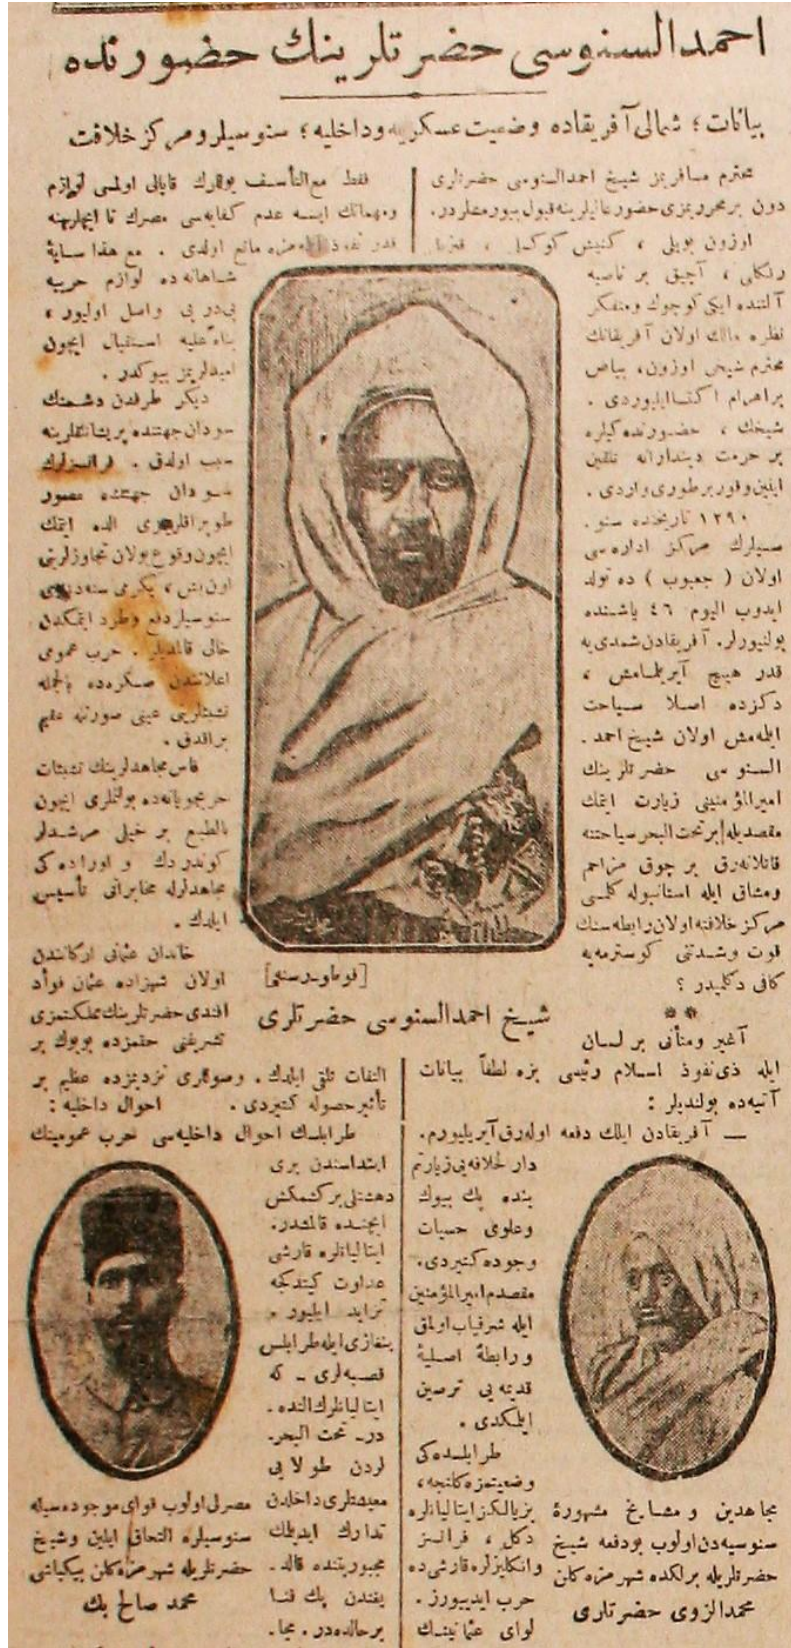 احمدالسنوسی حضرتلرینك حضورنده
بیانات ؛ شمالی آفریقاده وضعیت عسکریه وداخلیه ؛ سنوسیلر ومرکز خلافت
محترم مسافریمز شیخ احمدالسنوسی حضرتلری
دون بر محرریمزی حضور عالیلرینه قبول بیورمشلردر.
اوزون بویلی ، کنیش کوکسلی ،
رنکلی ، آچیق بر ناصیه
آلتنده ایکی کوچوك ومتفکر
نظره مالك اولان آفریقانك
محترم شیخی اوزون، بیاض
بر احرام اکتسا ایلیوردی .
شیخك ، حضورنده کیلره
بر حرمت دیندارانه تلقین
ایلین وقور بر طوری واردی .
۱۲۹۰ تاریخنده سنو.
سیلرك مرکز اداره سی
اولان ( جعبوب ) ده تولد
ایدوب الیوم ٤٦ یاشنده
بولنیورلر. آفریقادن شمدی یه
قدر هیچ آیریلمامش ،
دکزده اصلا سیاحت
ایله مش اولان شیخ احمد.
السنوسی حضرتلرینك
امیرالمؤمنینی زیارت ایتمك
مقصدیله بر تحت البحر سیاحتنه
قاتلانه رق بر چوق مزاحم
ومشاق ایله استانبوله کلمسی
مرکز خلافته اولان رابطه سنك
قوت وشدتنی کوسترمه یه
کافی دکلمیدر ؟
**
آغیر ومتأنی بر لسان
ایله ذی نفوذ اسلام رئیسی بزه لطفاً بیانات
آتیه ده بولندیلر :
— آفریقادن ایلك دفعه اوله رق آیریلیورم.
دار الخلافه یی زیارتم
بنده پك بیوك
وعلوی حسیات
وجوده کتیردی.
مقصدم امیرالمؤمنین
ایله شرفیاب اولمق
و رابطۀ اصلیۀ
قدیمه یی ترصین
ایلمکدی .
طرابلسده کی
وضعیتمزه کلنجه ،
بز یالکز ایتالیانلره
دکل ، فرانسز
وانکلیزلره قارشی ده
حرب ایدییورز .
لوای عثمانینك
مجاهدین و مشایخ مشهورۀ
سنوسیه دن اولوب بودفعه شیخ
حضرتلریله برلکده شهرمزه کلن
محمد الزوی حضرتلری
فقط مع التأسف یوللرك قاپالی اولمسی لوازم
ومهماتك ایسه عدم کفایه سی مصرك تا ایچلرینه
قدر نفوذ ایتمه مزه مانع اولدی . مع هذا سایۀ
شاهانه ده لوازم حربیه
پی درپی واصل اولیور ،
بناءً علیه استقبال ایچون
امیدلریمز بیوکدر .
دیکر طرفدن دشمنك
سودان جهتنده پریشانلقلرینه
سبب اولدق . فرانسزلرك
سودان جهتنده مصور
طوپراقلری الده ایتمك
ایچون وقوع بولان تجاوزلرینی
اون بش ، یکرمی سنه دنبری
سنوسیلر دفع وطرد ایتمکدن
خالی قالمدیلر . حرب عمومی
اعلانندن صکره ده بالجمله
تشبثلرینی عینی صورتله عقیم
براقدق .
فاس مجاهدلرینك تشبثات
حربجویانه ده بولنملری ایچون
بالطبع بر خیلی مرشدلر
کوندردك و اوراده کی
مجاهدلرله مخابراتی تأسیس
ایلدك .
خاندان عثمانی ارکانندن
اولان شهزاده عثمان فؤاد
افندی حضرتلرینك مملکتمزی
تشریفنی حقمزده بویوك بر
التفات تلقی ایلدك . وصوللری نزدیمزده عظیم بر
تأثیر حصوله کتیردی . احوال داخلیه :
طرابلسك احوال داخلیه سی حرب عمومینك
ابتداسندن بری
دهشتلی بر کشمکش
ایچنده قالمشدر.
ایتالیانلره قارشی
عداوت کیتدکجه
تزاید ایلیور .
بنغازی ایله طرابلس
قصبه لری – که
ایتالیانلرك النده .
در– تحت البحر.
لردن طولایی
معیشتلری داخلدن
تدارك ایدیلمك
مجبوریتنده قالد.
یغندن پك فنا
بر حالده در. مجا.
[فوطو-رسملی]
شیخ احمدالسنوسی حضرتلری
مصرلی اولوب قوای موجوده سیله
سنوسیلره التحاق ایلین وشیخ
حضرتلریله شهرمزه کلن بیکباشی
محمد صالح بك